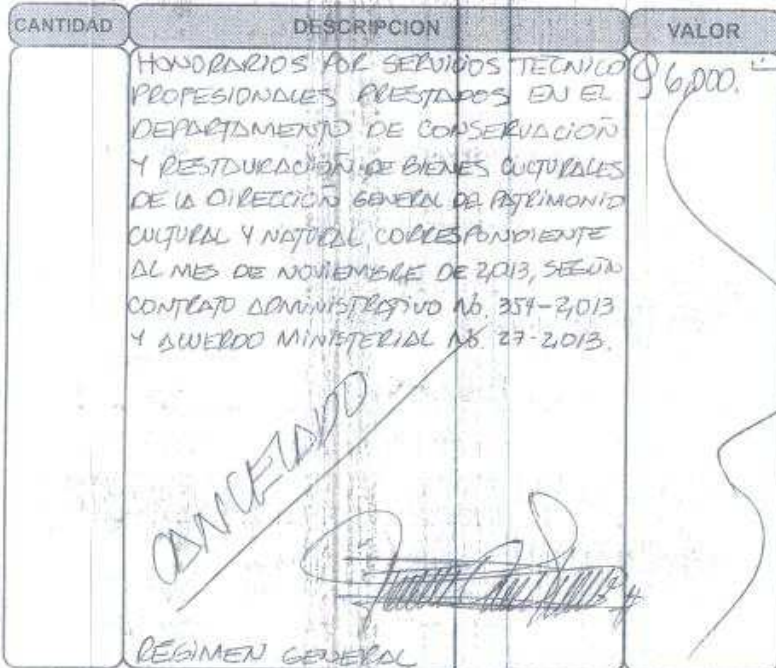 CANTIDAD DESCRIPCION VALOR
HONORARIOS POR SERVICIOS TECNICO Q 6,000.
PROFESIONALES PRESTADOS EN EL
DEPARTAMENTO DE CONSERVACIÓN
Y RESTAURACIÓN DE BIENES CULTURALES
DE LA DIRECCIÓN GENERAL DE PATRIMONIO
CULTURAL Y NATURAL, CORRESPONDIENTE
AL MES DE NOVIEMBRE DE 2,013, SEGÚN
CONTRATO ADMINISTRATIVO No. 354-2,013
Y ACUERDO MINISTERIAL No. 27-2,013.
CANCELADO
REGIMEN GENERAL